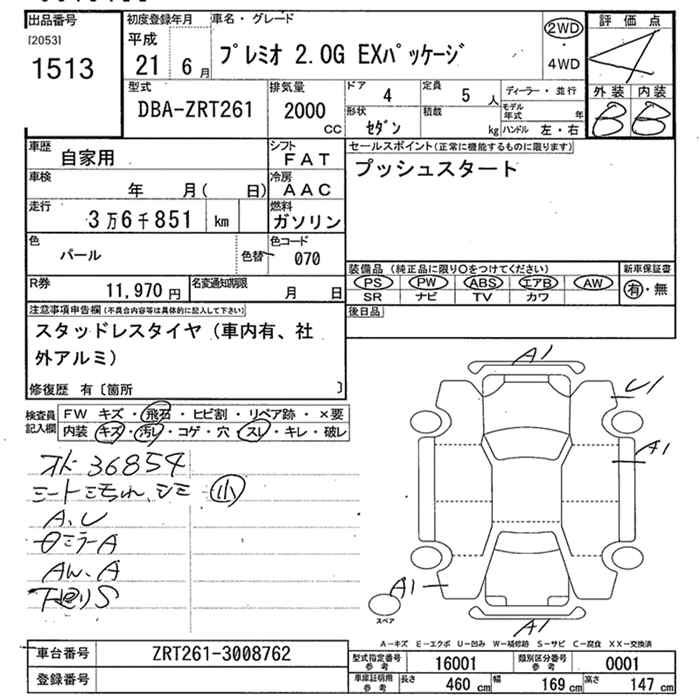 出品番号 初度登録年月 車名・グレード 評価点
[2053] 平成 プレミオ 2.0G EXパッケージ 2WD
1513 21 6月 4WD 4
型式 排気量 ドア 4 定員 5人 ディーラー・並行 外装 内装
DBA-ZRT261 2000 CC 形状 セダン 積載 kg モデル年式 年 B B
ハンドル 左・右
車歴 自家用 シフト FAT セールスポイント(正常に機能するものに限ります)
車検 年 月( 日) 冷房 AAC プッシュスタート
走行 3万6千851 km 燃料 ガソリン
色 パール 色替 色コード 070
装備品(純正品に限り○をつけてください) 新車保証書
R券 11,970円 名変通知期限 月 日 PS PW ABS エアB AW 有・無
SR ナビ TV カワ
注意事項申告欄(不具合内容等は具体的に記入して下さい) 後日品
スタッドレスタイヤ(車内有、社
外アルミ)
修復歴 有〔箇所 〕
検査員記入欄 FW キズ・飛石・ヒビ割・リペア跡・×要
内装 キズ・汚レ・コゲ・穴・スレ・キレ・破レ
36854
小
A、U
ミラーA
AW、A
下廻りS
A1
U1
A1
A1
A1
スペア
A-キズ E-エクボ U-凹み W-補修跡 S-サビ C-腐食 XX-交換済
車台番号 ZRT261-3008762 型式指定番号 参考 16001 類別区分番号 参考 0001
登録番号 車庫証明用 参考 長さ 460cm 幅 169cm 高さ 147cm